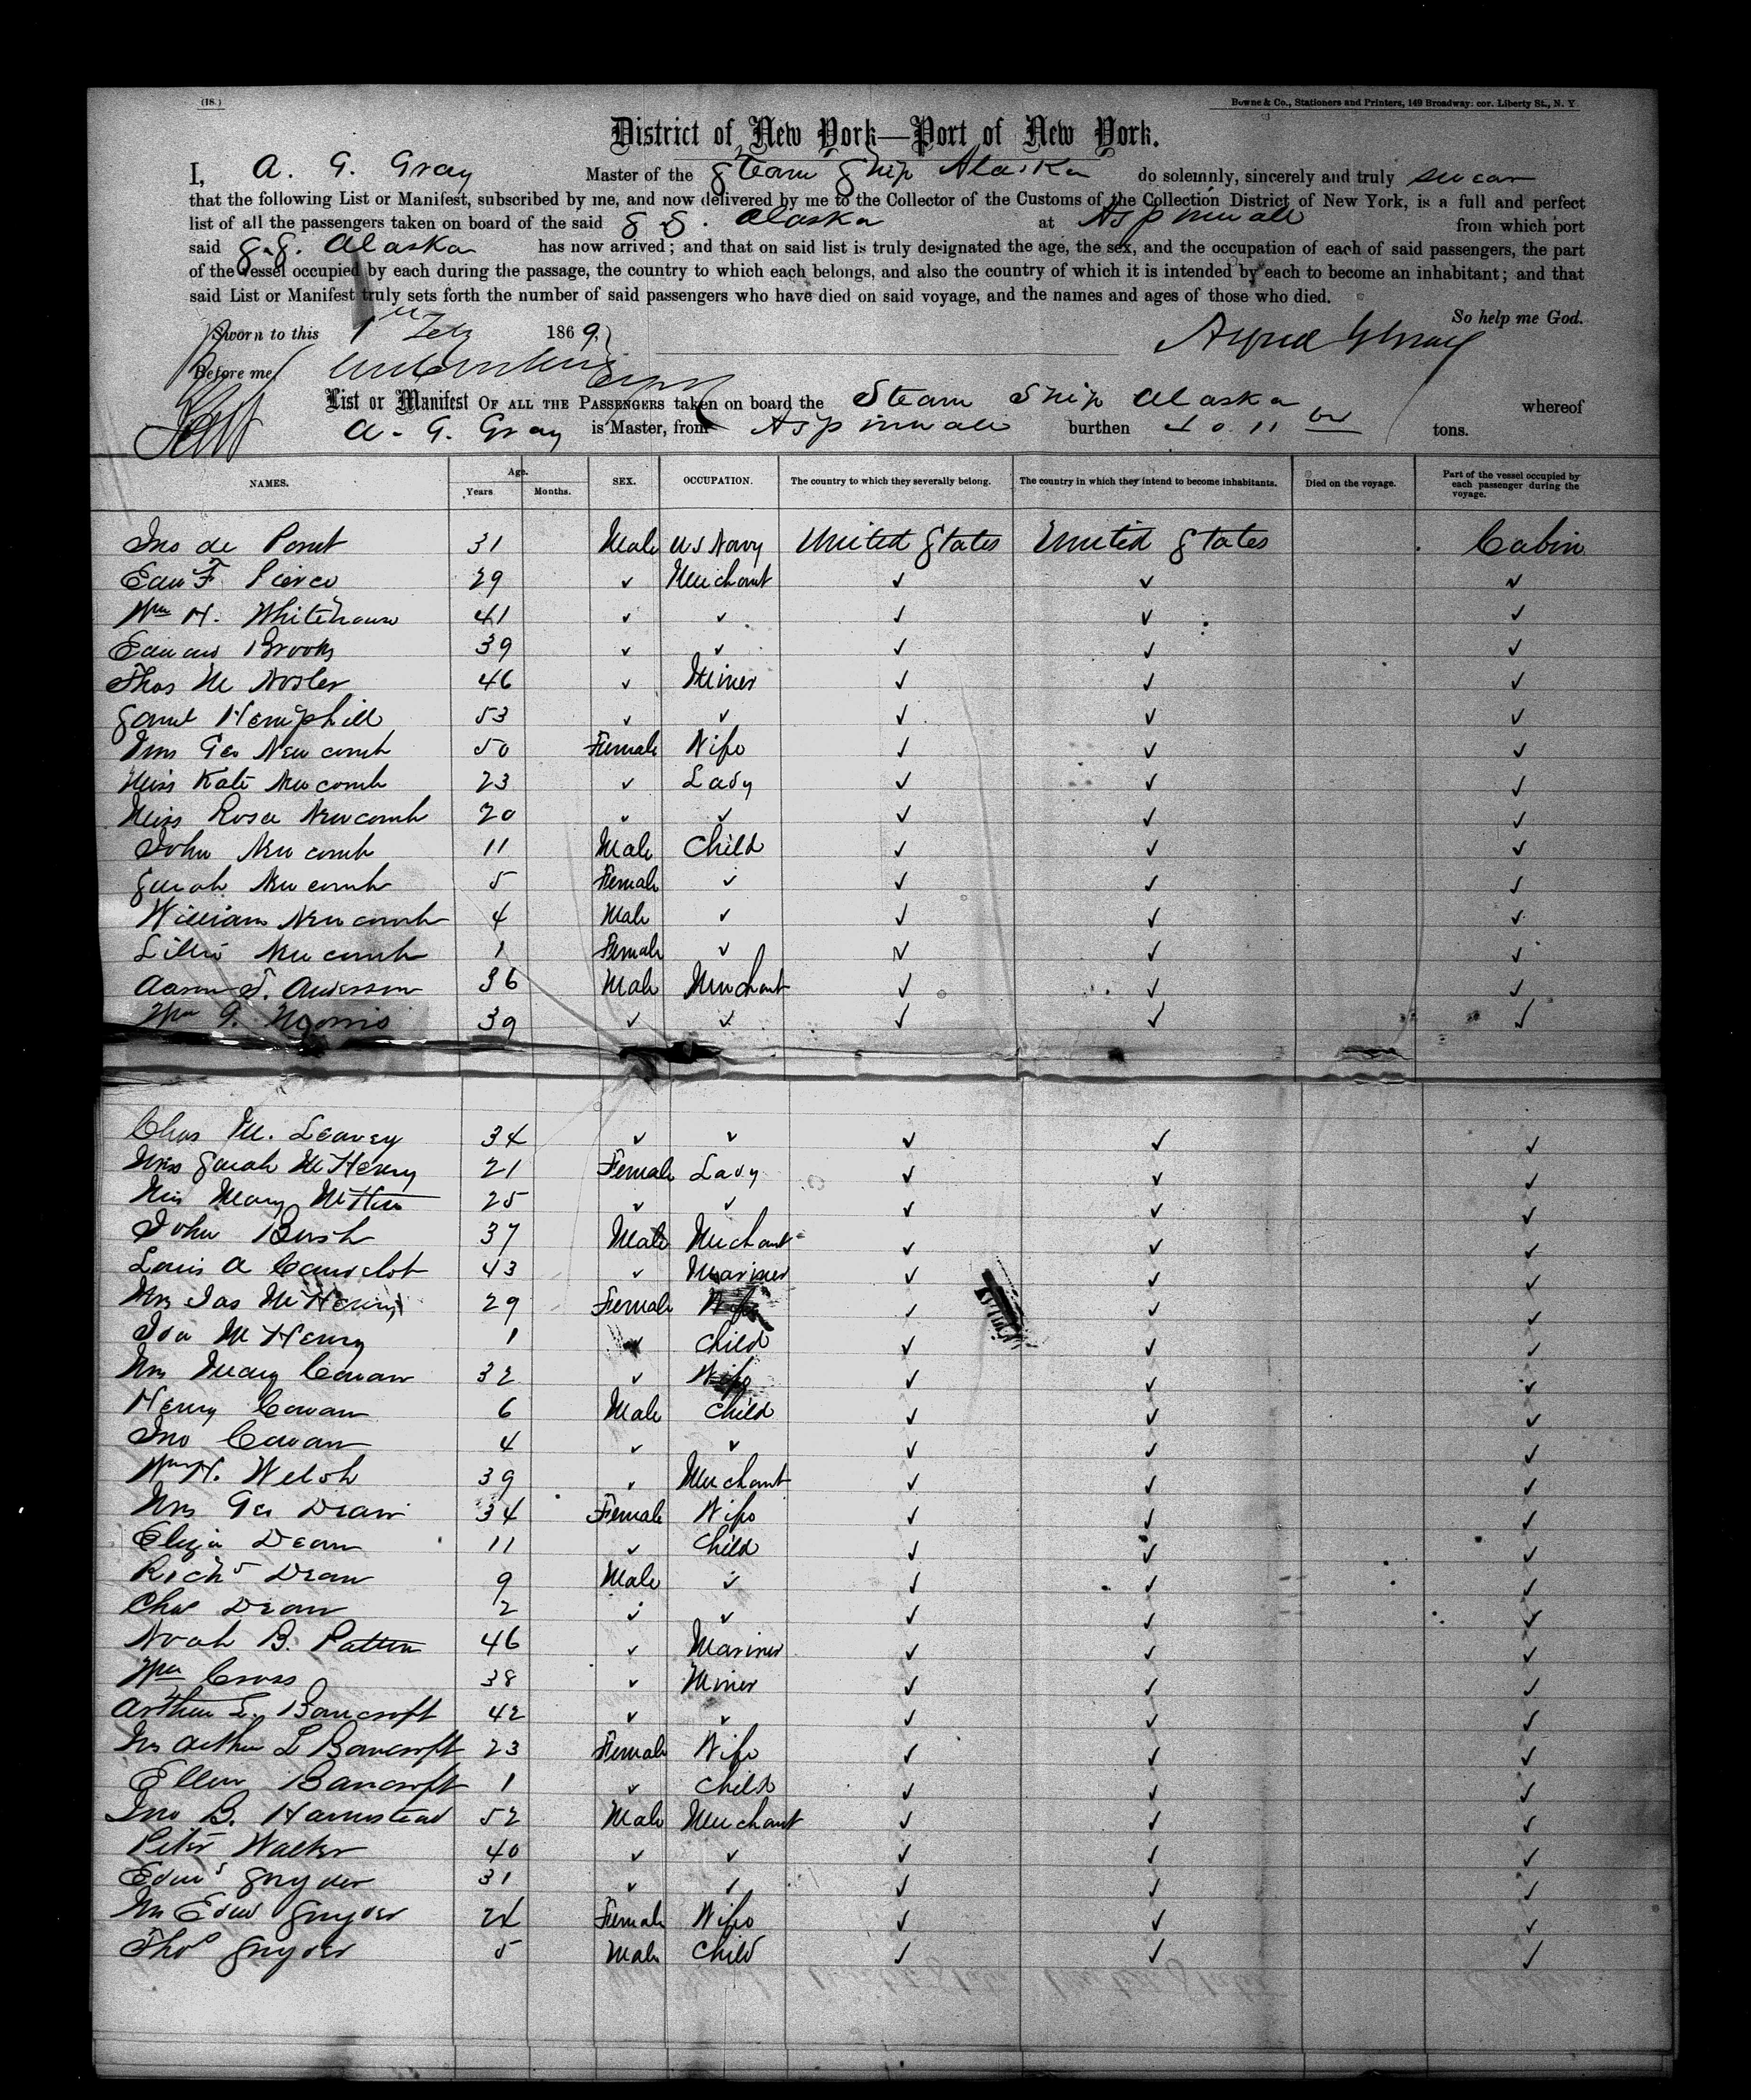 (18.)
Bowne & Co., Stationers and Printers, 149 Broadway. cor. Liberty St., N. Y.
District of New York—Port of New York.
I, A. G. Gray Master of the Steam Ship Alaska do solemnly, sincerely and truly swear
that the following List or Manifest, subscribed by me, and now delivered by me to the Collector of the Customs of the Collection District of New York, is a full and perfect
list of all the passengers taken on board of the said S. S. Alaska at Aspinwall from which port
said S. S. Alaska has now arrived; and that on said list is truly designated the age, the sex, and the occupation of each of said passengers, the part
of the vessel occupied by each during the passage, the country to which each belongs, and also the country of which it is intended by each to become an inhabitant; and that
said List or Manifest truly sets forth the number of said passengers who have died on said voyage, and the names and ages of those who died.
So help me God.
Sworn to this 1st Feby 1869.
Before me,
List or Manifest OF ALL THE PASSENGERS taken on board the Steam Ship Alaska whereof
A. G. Gray is Master, from Aspinwall burthen 4011 tons.
NAMES. Age. Years Months. SEX. OCCUPATION. The country to which they severally belong. The country in which they intend to become inhabitants. Died on the voyage. Part of the vessel occupied by each passenger during the voyage.
Jno de 31 Male U S Navy United States United States Cabin
Edw F. Pierce 29 ✓ Merchant ✓ ✓ ✓
Wm H. Whitehouse 41 ✓ ✓ ✓ ✓ ✓
Edward Brooks 39 ✓ ✓ ✓ ✓ ✓
Thos M Nosler 46 ✓ Miner ✓ ✓ ✓
Saml Hemphill 53 ✓ ✓ ✓ ✓ ✓
Mrs Geo Newcomb 50 Female Wife ✓ ✓ ✓
Miss Kate Newcomb 23 ✓ Lady ✓ ✓ ✓
Miss Rosa Newcomb 20 ✓ ✓ ✓ ✓ ✓
John Newcomb 11 Male Child ✓ ✓ ✓
Sarah Newcomb 5 Female ✓ ✓ ✓ ✓
William Newcomb 4 Male ✓ ✓ ✓ ✓
Lillie Newcomb 1 Female ✓ ✓ ✓ ✓
Aaron S. Anderson 36 Male Merchant ✓ ✓ ✓
Wm G. Morris 39 ✓ ✓ ✓ ✓ ✓
Chas M. Leavey 34 ✓ ✓ ✓ ✓ ✓
Miss Sarah McHenry 21 Female Lady ✓ ✓ ✓
Miss Mary 25 ✓ ✓ ✓ ✓ ✓
John Bush 37 Male Merchant ✓ ✓ ✓
Louis A 43 ✓ Mariner ✓ ✓ ✓
Mrs Jas McHenry 29 Female Wife ✓ ✓ ✓
Ida McHenry 1 ✓ Child ✓ ✓ ✓
Mrs Mary Cowan 32 ✓ Wife ✓ ✓ ✓
Henry Cowan 6 Male Child ✓ ✓ ✓
Jno Cowan 4 ✓ ✓ ✓ ✓ ✓
Wm H. Welsh 39 ✓ Merchant ✓ ✓ ✓
Mrs Geo Dean 34 Female Wife ✓ ✓ ✓
Eliza Dean 11 ✓ Child ✓ ✓ ✓
Richd Dean 9 Male ✓ ✓ ✓ ✓
Chas Dean 2 ✓ ✓ ✓ ✓ ✓
Noah B. Patten 46 ✓ Mariner ✓ ✓ ✓
Wm Cross 38 ✓ Miner ✓ ✓ ✓
Arthur L. Bancroft 42 ✓ ✓ ✓ ✓ ✓
Mrs Arthur L Bancroft 23 Female Wife ✓ ✓ ✓
Ellen Bancroft 1 ✓ Child ✓ ✓ ✓
Jno B. Harmstead 52 Male Merchant ✓ ✓ ✓
Peter Walker 40 ✓ ✓ ✓ ✓ ✓
Edwd Snyder 31 ✓ ✓ ✓ ✓ ✓
Mrs Edwd Snyder 24 Female Wife ✓ ✓ ✓
Thos Snyder 5 Male Child ✓ ✓ ✓